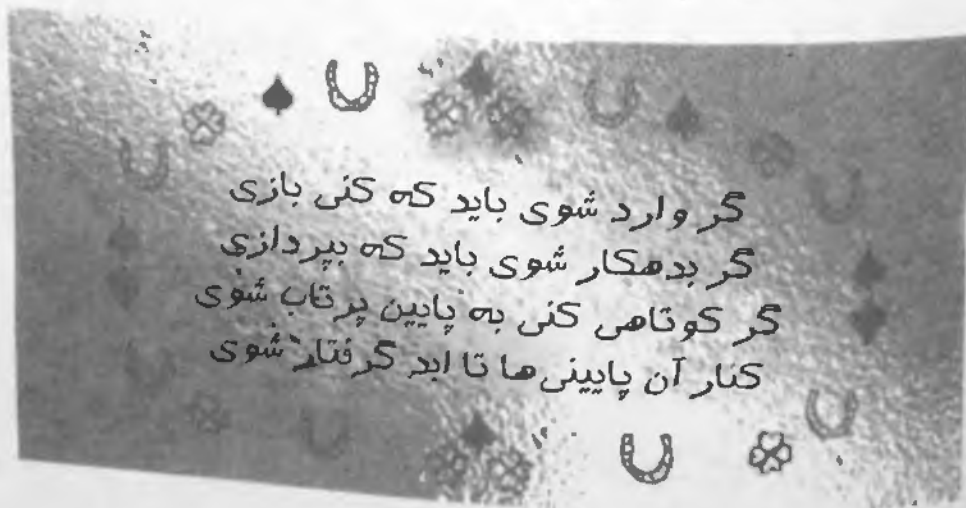 گر وارد شوی باید که کنی بازی
گر بدهکار شوی باید که بپردازی
گر کوتاهی کنی به پایین پرتاب شوی
کنار آن پایینی‌ها تا ابد گرفتار شوی